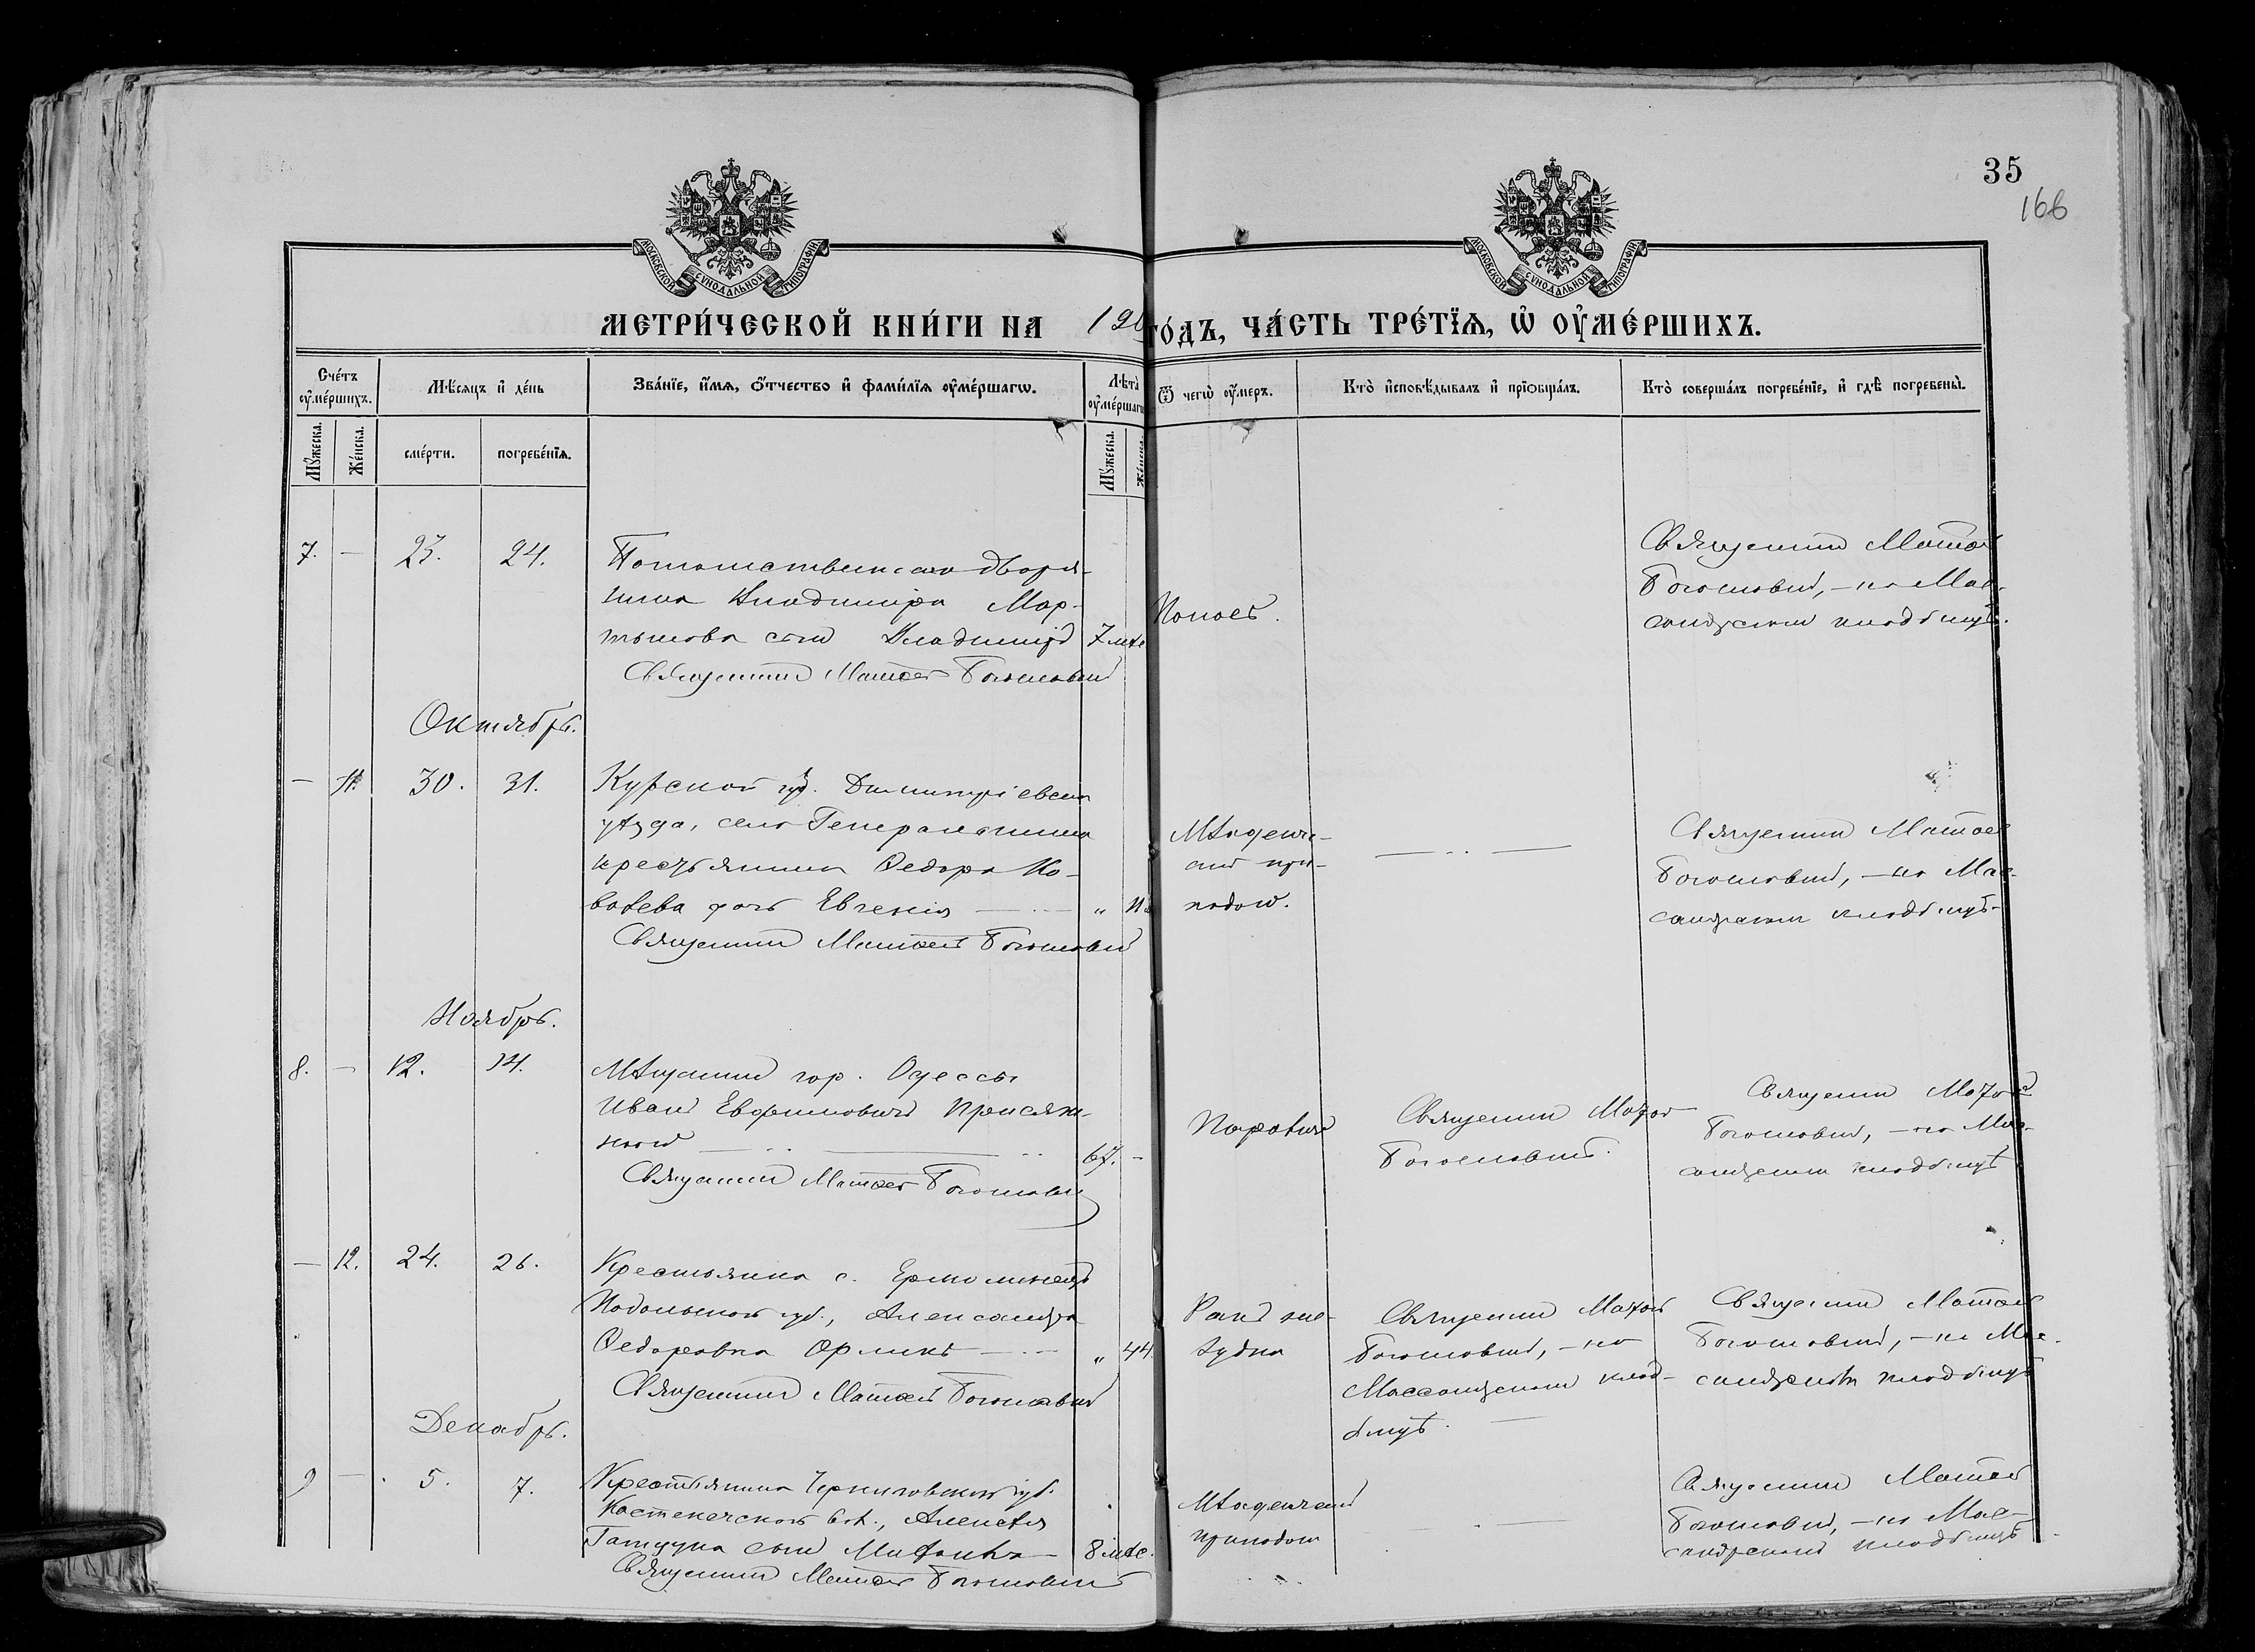 35
166
МОСКОВСКОЙ СѴНОДАЛЬНОЙ ТИПОГРАФІИ
МОСКОВСКОЙ СѴНОДАЛЬНОЙ ТИПОГРАФІИ
МЕТРИ́ЧЕСКОЙ КНИ́ГИ НА 190
ГО́ДЪ, ЧА́СТЬ ТРЕ́ТЇѦ, Ѡ҆ ОУ҆МЕ́РШИХЪ.
Сче́тъ оу҆ме́ршихъ.
Мѣ́сяцъ и҆ де́нь
Зва́нїе, и҆́мѧ, ѻ҆́тчество и҆ фами́лїѧ оу҆ме́ршагѡ.
Лѣ́та оу҆ме́ршагѡ
Ѿ чегѡ̀ оу҆́меръ.
Кто̀ и҆сповѣ́дывалъ и҆ прїѡбща́лъ.
Кто̀ соверша́лъ погребе́нїе, и҆ гдѣ̀ погребены̀.
Мꙋ́жеска.
Же́нска.
сме́рти.
погребе́нїѧ.
Мꙋ́жеска.
Же́нска.
7. — 23. 24.
Потомственнаго дворя-
нина Владиміра Мар-
тынова сынъ Владиміръ 7 мѣс
Священникъ Матѳей Богословскій
Священникъ Матѳей
Богословскій, — на Мас-
сандрскомъ кладбищѣ.
Октябрь.
— 11. 30. 31.
Курской губ. Димитріевскаго
уѣзда, села Генеральшина
крестьянина Ѳедора Ко-
валева дочь Евгенія — „
Священникъ Матѳей Богословскій
Младенче-
скій при-
падокъ.
— .. —
Священникъ Матѳей
Богословскій, — на Мас-
сандрскомъ кладбищѣ.
Ноябрь.
8. — 12. 14.
Мѣщанинъ гор. Одессы
Иванъ Евфимовичъ Присяж-
ный — .. — .. 67. —
Священникъ Матѳей Богословскій
Параличъ
Священникъ Матѳей
Богословскій.
Священникъ Матѳей
Богословскій, — на Мас-
сандрскомъ кладбищѣ
— 12. 24. 26.
Крестьянка с. Ермолинецъ
Подольской губ., Александра
Ѳедоровна Орликъ — „ 44.
Священникъ Матѳей Богословскій
Ракъ же-
лудка
Священникъ Матѳей
Богословскій, — на
Массандрскомъ клад-
бищѣ. —
Священникъ Матѳей
Богословскій, — на Мас-
сандрскомъ кладбищѣ
Декабрь.
9 — 5. 7.
Крестьянина Черниговской губ.
вол., Алексѣя
сынъ 8 мѣс.
Священникъ Матѳей Богословскій
Младенческій
припадокъ
— . —
Священникъ Матѳей
Богословскій, — на Мас-
сандрскомъ кладбищѣ